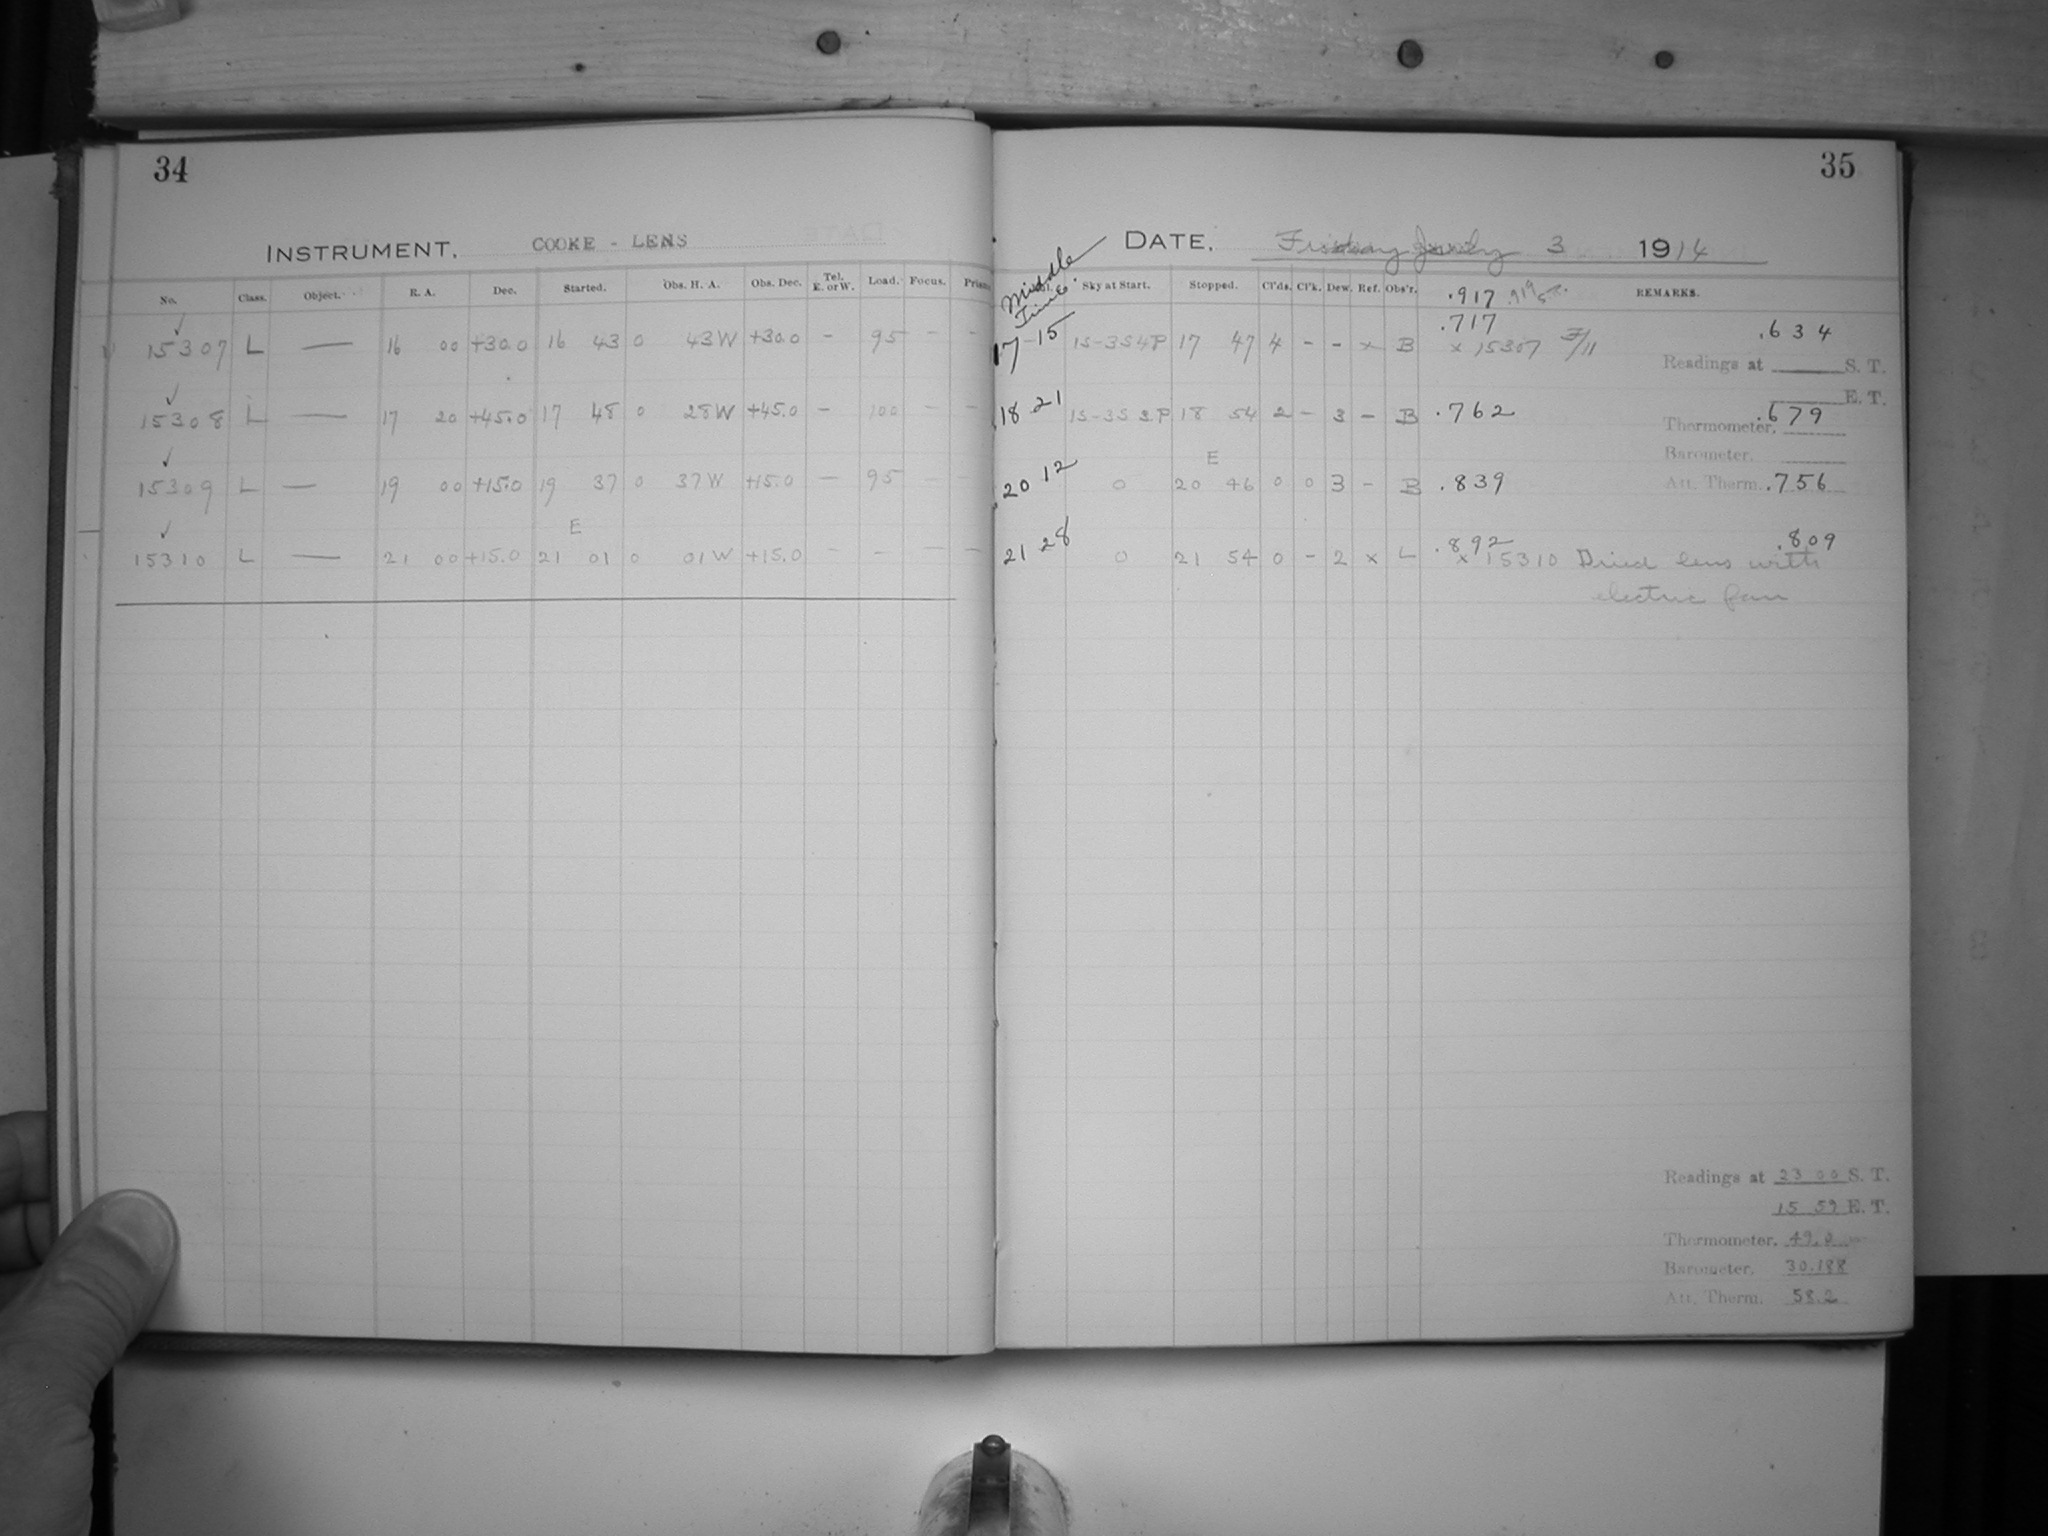 34
INSTRUMENT. COOKE - LENS
No. Class. Object. R. A. Dec. Started. Obs. H. A. Obs. Dec. Tel. E. or W. Load. Focus. Prism
✓
15307 L — 16 00 +30.0 16 43 0 43W +30.0 - 95 - -
✓
15308 L — 17 20 +45.0 17 48 0 28W +45.0 - 100 - -
✓
15309 L — 19 00 +15.0 19 37 0 37W +15.0 - 95 - -
✓ E
15310 L — 21 00 +15.0 21 01 0 01W +15.0 - - - -
35
DATE. Friday July 3 1914
Middle Time.
Sky at Start. Stopped. Cl'ds. Cl'k. Dew. Ref. Obs'r. .917 REMARKS.
.717 .634
17-15 1S-3S4P 17 47 4 - - x B x 15307
Readings at S. T.
E. T.
18 21 1S-3S 2P 18 54 2 - 3 - B .762 .679
Thermometer.
Barometer.
E
20 12 0 20 46 0 0 3 - B .839 Att. Therm. .756
.892 .809
21 28 0 21 54 0 - 2 x L x 15310 Dried lens with
electric fan
Readings at 23 00 S. T.
15 59 E. T.
Thermometer. 49.0
Barometer. 30.188
Att. Therm. 58.2